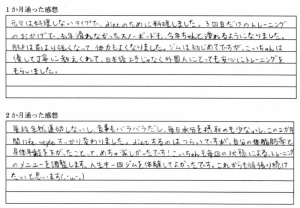 1か月通った感想
元々は料理しないタイプで、dietのために料理しました。3回目だけのトレーニング
のおかげで、去年滑れなかったスノーボードも、今年ちゃんと滑れるようになりました。
肌は前より強くなって、体力もよくなりました。ジムは初じめてですが、こいちゃんは
優して丁寧に教えくれて、日本語上手じゃなく外国人にとても安心にトレーニングを
もらいました。
2か月通った感想
普段全然運動しないし、食事もバラバラだし、毎日水分を摂取のも少ないし、この2か月
間 life style すっかり変わりました。dietするのはつらいですが、自分の体脂肪率と
身体年齢を下がったことって、めちゃ楽しかったです！こいちゃんも毎回の状態によるトレーニング
のメニューを調整します。人生十一回ジムを体験してよかったです。これからも頑張り続け
たいと思います(･ω･)